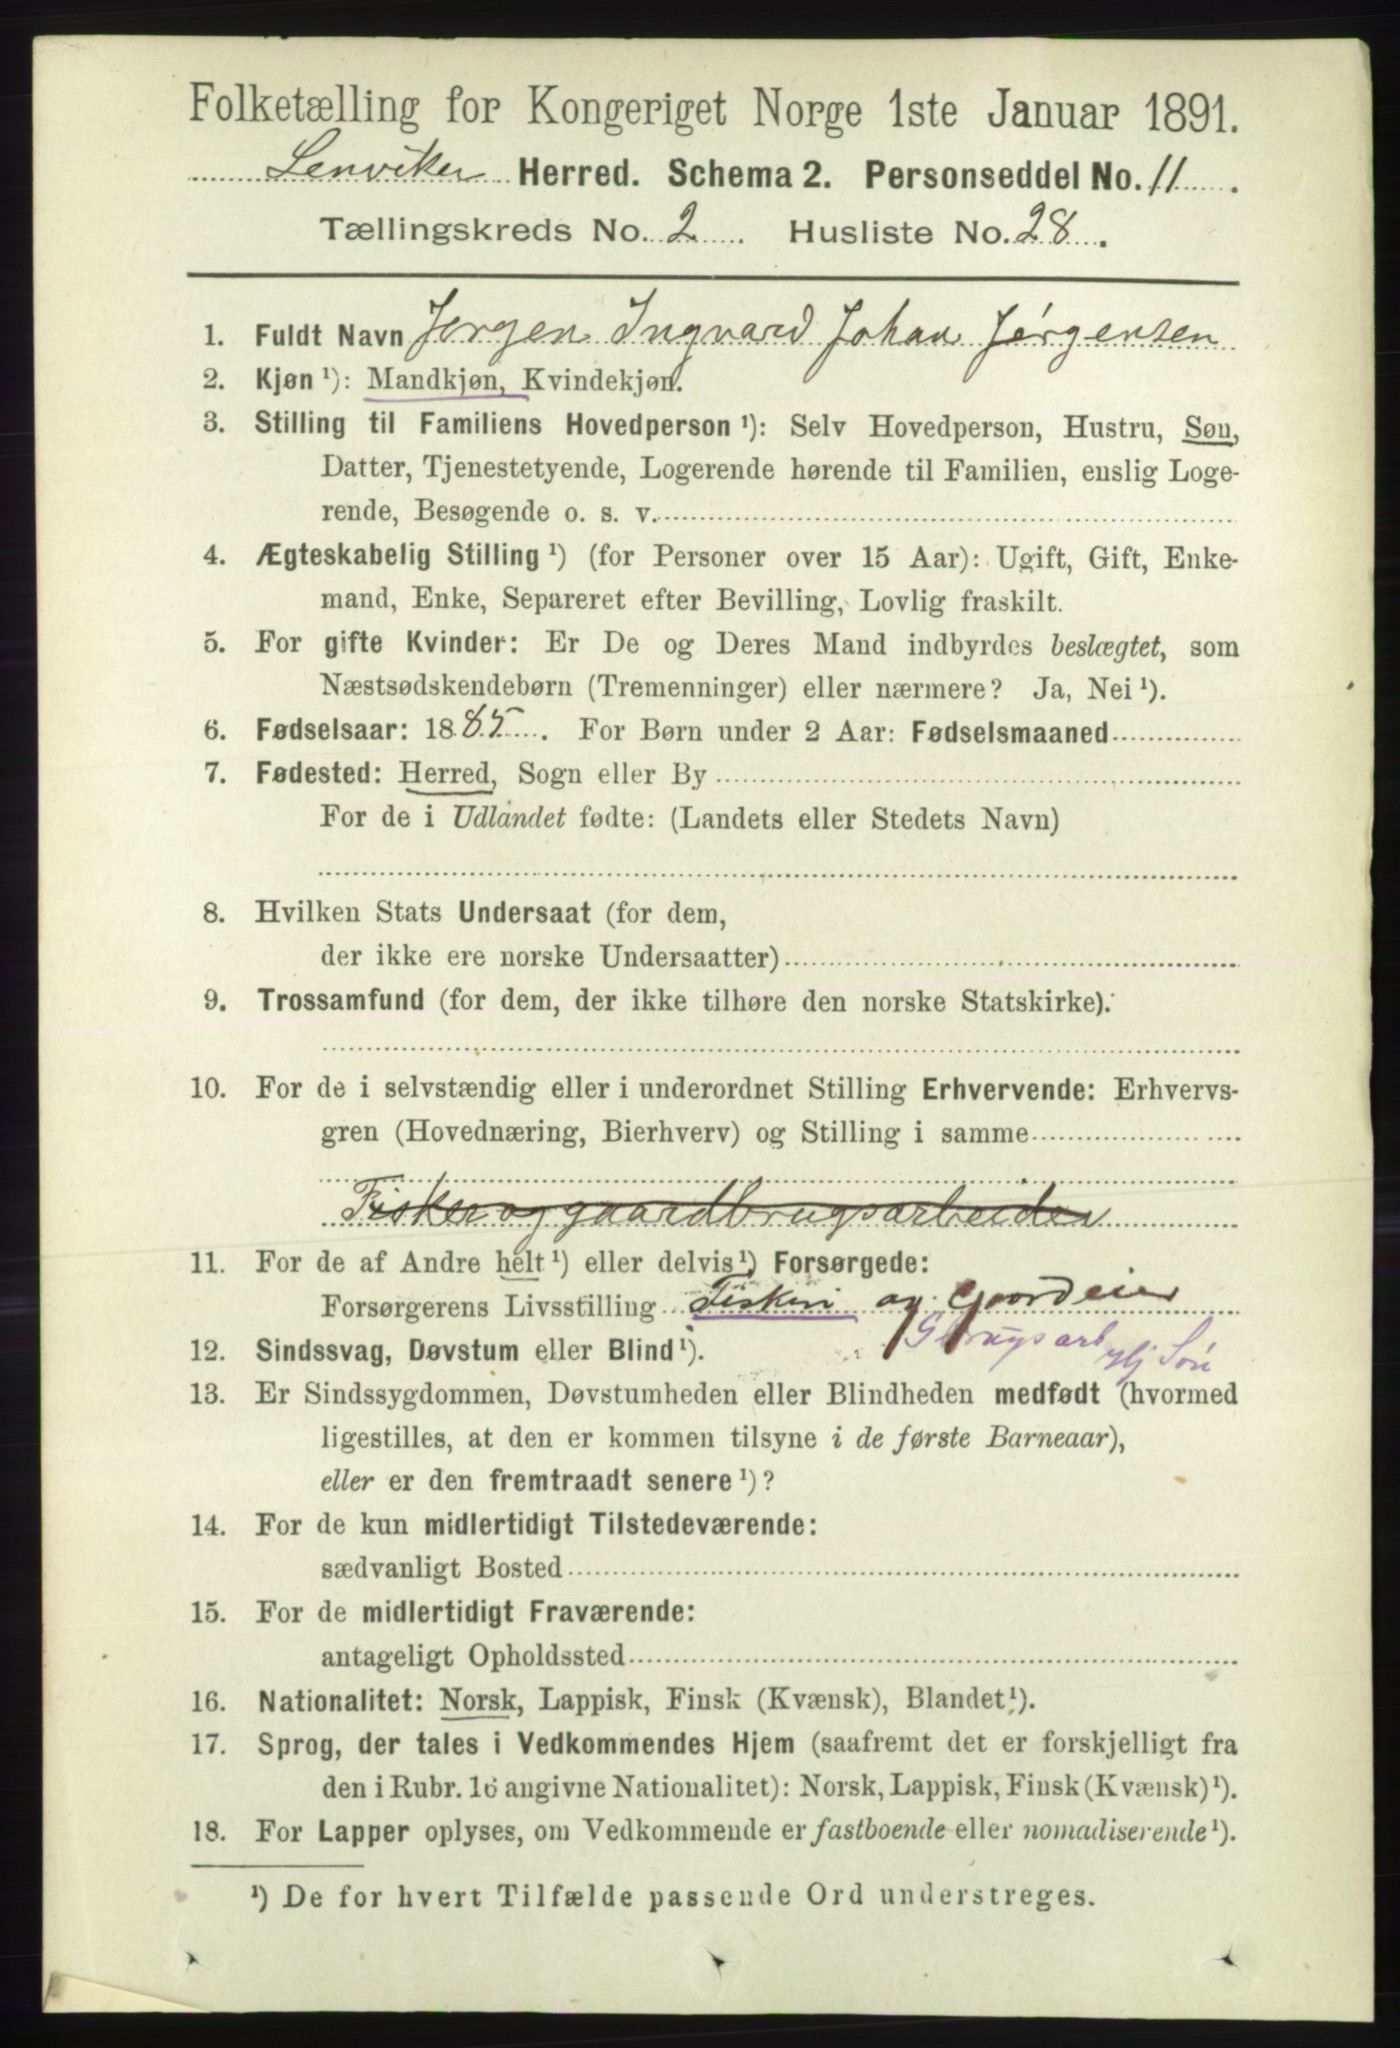 Folketælling for Kongeriget Norge 1ste Januar 1891.
Lenviken Herred. Schema 2. Personseddel No. 11
Tællingskreds No. 2 Husliste No. 28.
1. Fuldt Navn Jørgen Ingvard Johan Jørgensen
2. Kjøn ¹): Mandkjøn, Kvindekjøn.
3. Stilling til Familiens Hovedperson ¹): Selv Hovedperson, Hustru, Søn,
Datter, Tjenestetyende, Logerende hørende til Familien, enslig Loge-
rende, Besøgende o. s. v.
4. Ægteskabelig Stilling ¹) (for Personer over 15 Aar): Ugift, Gift, Enke-
mand, Enke, Separeret efter Bevilling, Lovlig fraskilt.
5. For gifte Kvinder: Er De og Deres Mand indbyrdes beslægtet, som
Næstsødskendebørn (Tremenninger) eller nærmere? Ja, Nei ¹).
6. Fødselsaar: 1885. For Børn under 2 Aar: Fødselsmaaned
7. Fødested: Herred, Sogn eller By
For de i Udlandet fødte: (Landets eller Stedets Navn)
8. Hvilken Stats Undersaat (for dem,
der ikke ere norske Undersaatter)
9. Trossamfund (for dem, der ikke tilhøre den norske Statskirke).
10. For de i selvstændig eller i underordnet Stilling Erhvervende: Erhvervs-
gren (Hovednæring, Bierhverv) og Stilling i samme
Fisker og gaardbrugsarbeider
11. For de af Andre helt ¹) eller delvis ¹) Forsørgede:
Forsørgerens Livsstilling Fiskeri og Gaardeier
Gbrugsarb hj Søn
12. Sindssvag, Døvstum eller Blind ¹).
13. Er Sindssygdommen, Døvstumheden eller Blindheden medfødt (hvormed
ligestilles, at den er kommen tilsyne i de første Barneaar),
eller er den fremtraadt senere ¹)?
14. For de kun midlertidigt Tilstedeværende:
sædvanligt Bosted
15. For de midlertidigt Fraværende:
antageligt Opholdssted
16. Nationalitet: Norsk, Lappisk, Finsk (Kvænsk), Blandet ¹).
17. Sprog, der tales i Vedkommendes Hjem (saafremt det er forskjelligt fra
den i Rubr. 16 angivne Nationalitet): Norsk, Lappisk, Finsk (Kvænsk) ¹).
18. For Lapper oplyses, om Vedkommende er fastboende eller nomadiserende ¹).
¹) De for hvert Tilfælde passende Ord understreges.